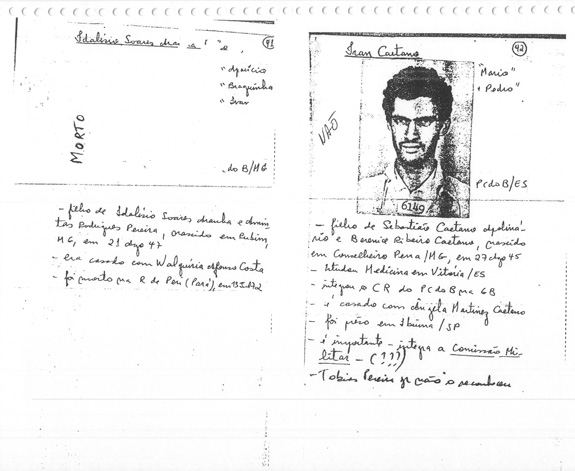 Idalisio Soares
91
"Aparicio
" Braquinha
" Ivan
MORTO
do B/MG
- filho de Idalisio Soares Aranha e Aminthas
Rodrigues Pereira, nascido em Rubim,
MG, em 21 Ago 47
- era casado com Walquiria Afonso Costa
- foi morto na R de Peri (Pará), em
Ivan Caetano
92
"Mario"
" Pedro"
NAÕ
6149
PC do B/ES
- filho de Sebastião Caetano
e Berenice Ribeiro Caetano, nascido
em Conselheiro Pena/MG, em 27 Ago 45
- Medicina em Vitoria/ES
- integrou o CR do PC do B na GB
- é casado com Angela Martinez Caetano
- foi prêso em Ibiuna/SP
- é importante - integra a Comissão Mi-
litar - (???)
- Tobias Pereira Jr não o reconheceu